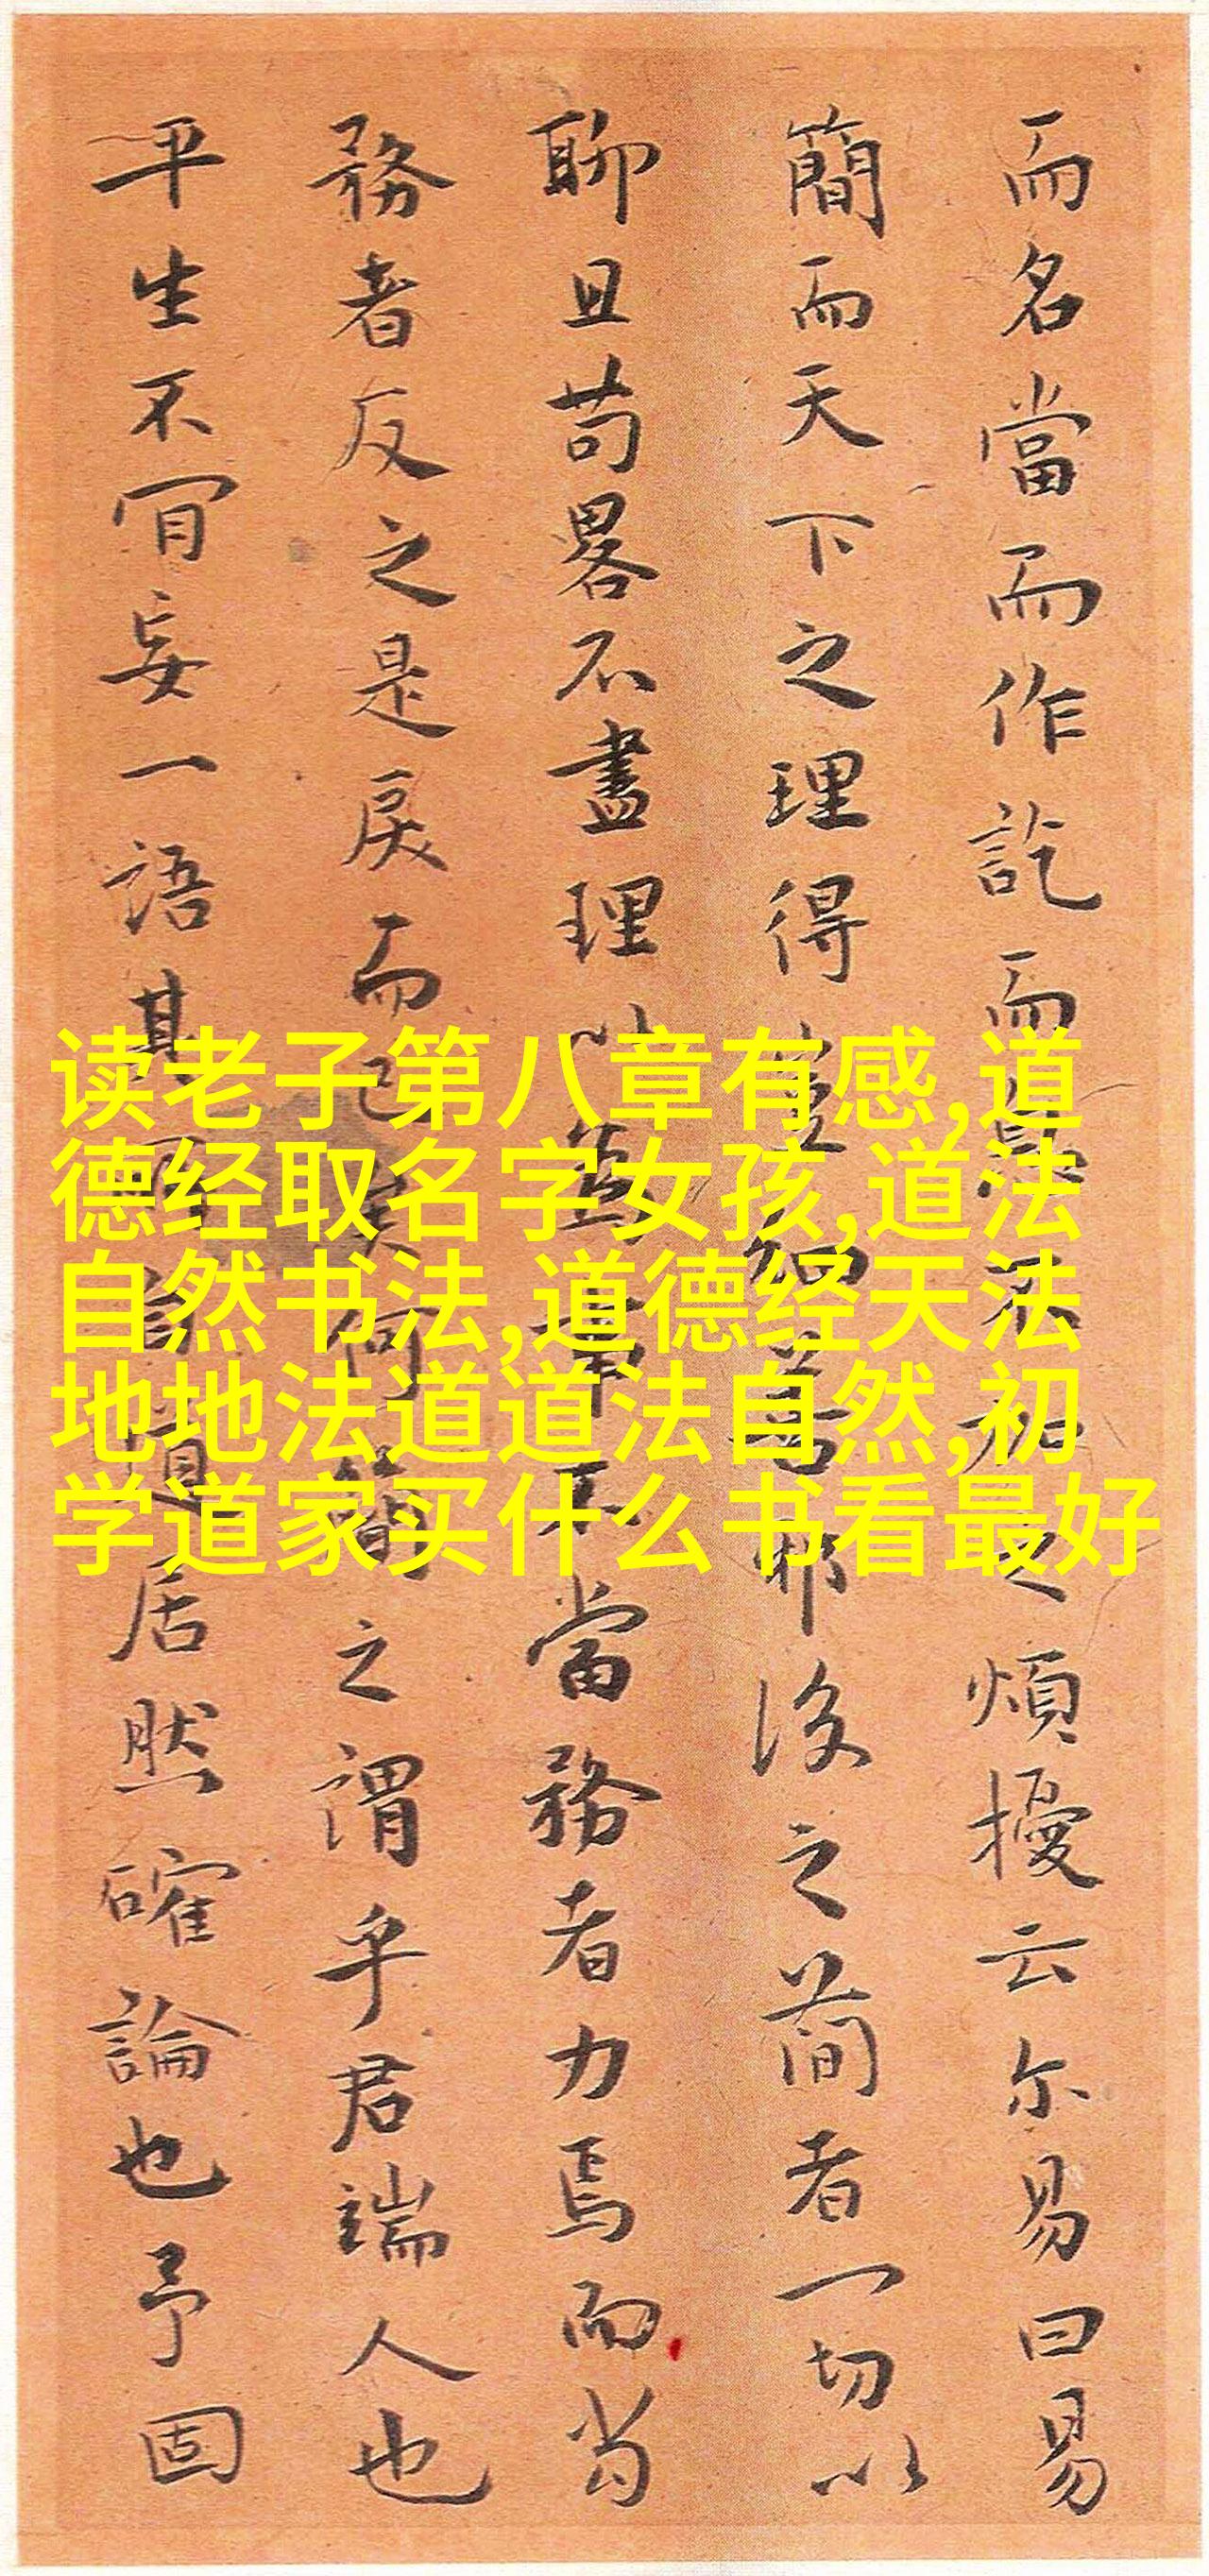 而名當而作訖而不之煩擾云尔易曰易
簡而天下之理得耶後之簡者一切以
聊且苟畧不盡理以事不當務者力焉而当
務者反之是戾而已矣何簡之謂乎君端人也
平生不肎妄一語其自道居然確論也予固
读老子第八章有感,道
德经取名字女孩,道法
自然书法,道德经天法
地地法道道法自然,初
学道家买什么书看最好